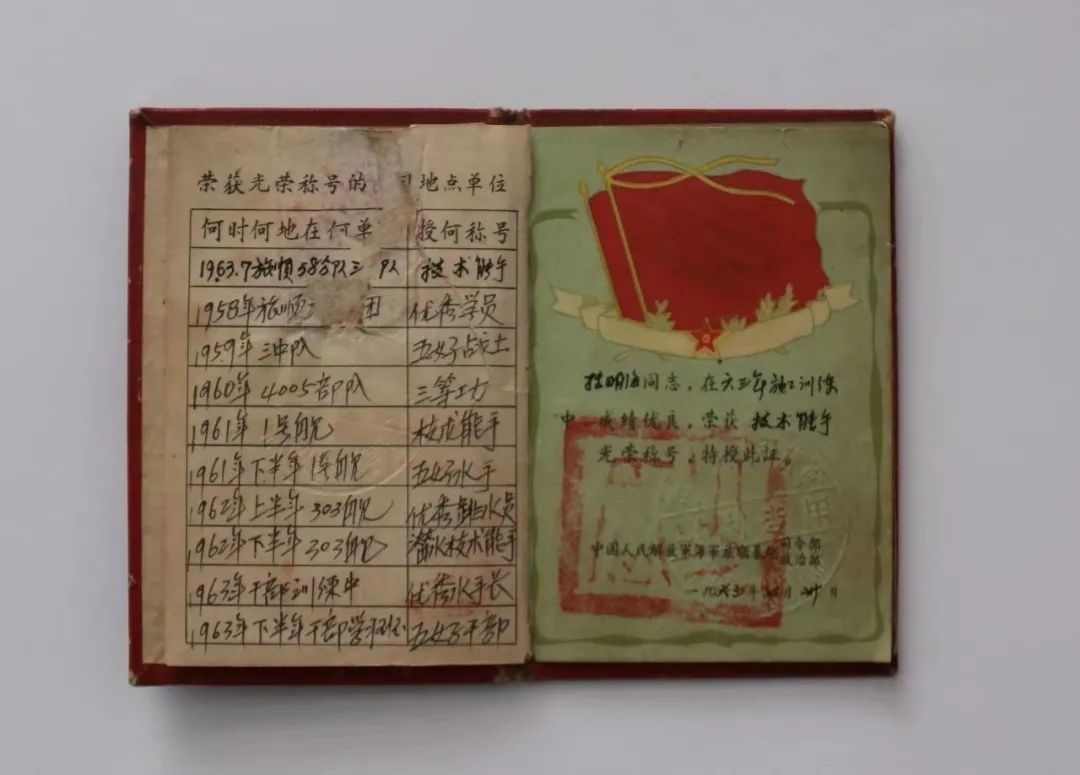 荣获光荣称号的 地点单位
何时何地在何单 授何称号
1963.7旅顺58分队三 队 技术能手
1958年旅顺 团 优秀学员
1959年三中队 五好战士
1960年4005部队 三等功
1961年1号舰 技术能手
1961年下半年1号舰 五好水手
1962年上半年303舰 优秀 水员
1962年下半年303舰 潜水技术能手
1963年干部训练中 优秀水手长
1963年下半年干部学习 五好干部
同志，在六三年施工训练
中，成绩优良，荣获 技术能手
光荣称号，特授此证。
中国人民解放军海军旅顺基地 司令部
政治部
一九六 年 月 日